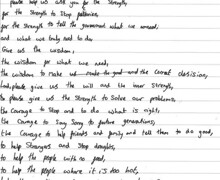 please help us ask you for the strength,
for the strength to stop pollution
for the strength to tell the government what we need;
and what we truly need to do
Give us the wisdom,
the wisdom for what we need,
the wisdom to make us and the correct decision,
Lord, please give us the will and the inner strength,
So please give us the strength to solve our problems.
the courage to stop and to do what is right,
the courage to future generations,
the courage to help friends and family and tell them to do good,
to help strangers and stop droughts,
to help the people with no food,
to help the people where it is too hot,